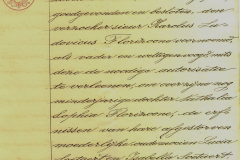 goedgevonden en besloten, den
verzoeker sieur Marolus Lu-
dovicus Florizoone voornoemd,
als vader en wettigen voogd, mits
dere de noodige autorisatie
te verleenen, om over zijne nog
minderjarige dochter Nathalia
Sophia Florizoone, de erf-
nissen van hare afgestorven
moederlijke oudtanten Lucia
Isabella